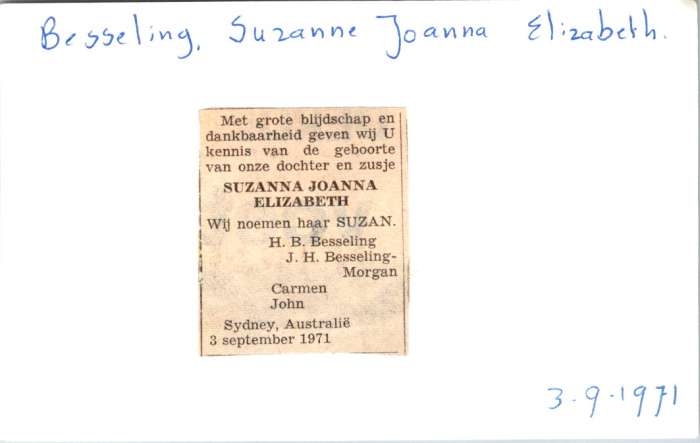 Besseling, Suzanne Joanna Elizabeth.
Met grote blijdschap en
dankbaarheid geven wij U
kennis van de geboorte
van onze dochter en zusje
SUZANNA JOANNA
ELIZABETH
Wij noemen haar SUZAN.
H. B. Besseling
J. H. Besseling-
Morgan
Carmen
John
Sydney, Australië
3 september 1971
3-9-1971